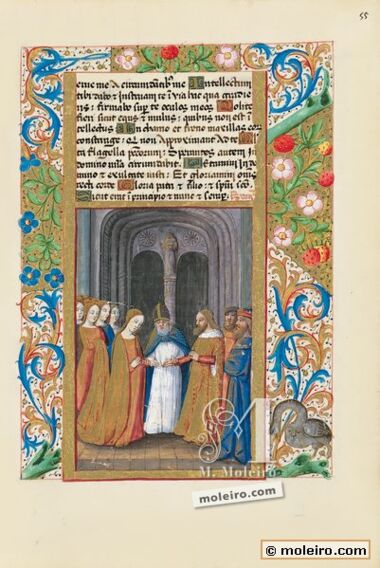 55
eme me a circundātib; me Intellectum
tibi dabo & instruam te ī via hac qua gradie
ris: firmabo sup te oculos meos Nolite
fieri sicut equs & mulus: quibus non est ī
tellectus In chamo et freno maxillas eor
constringe: qui non approximant ad te
ta flagella peccatorum: Sperantes autem ī
domino misericordia circundabit Letamini in do
mino & exultate iusti: Et gloriamini omīs
recti corde Gloria patri & filio: & spiri sct̄o
Sicut erat ī principio & nunc & semper:
M. Moleiro
moleiro.com
© moleiro.com